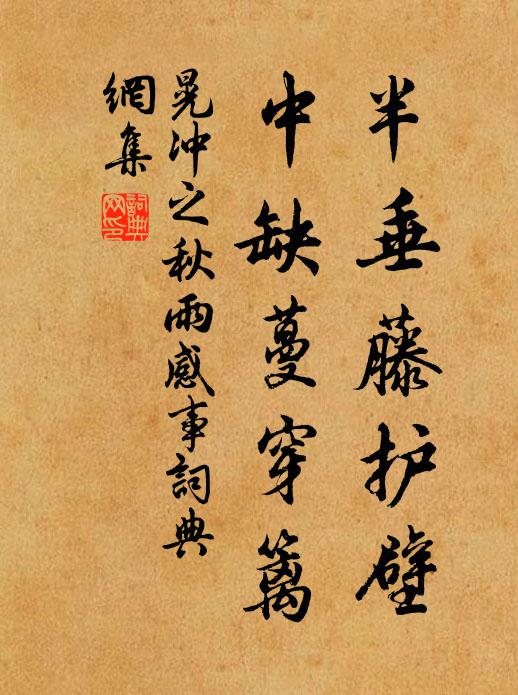 半垂藤护壁
中缺蔓穿篱
晁冲之秋雨感事詞典
網集
詞典网印